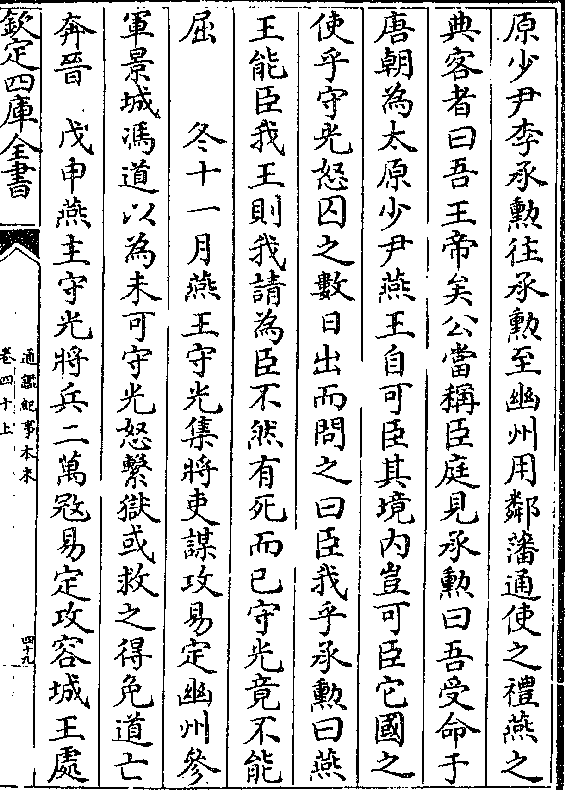 原少尹李承勲往承勲至幽州用鄰藩通使之禮燕之
典客者曰吾王帝矣公當稱臣庭見承勲曰吾受命于
唐朝為太原少尹燕王自可臣其境内豈可臣它國之
使乎守光怒囚之數日出而問之曰臣我乎承勲曰燕
王能臣我王則我請為臣不然有死而已守光竟不能
屈　　冬十一月燕王守光集將吏謀攻易定幽州參
軍景城馮道以為未可守光怒繫獄或救之得免道亡
奔晉　戊申燕主守光將兵二萬㓂易定攻容城王處
欽定四庫全書
通鑑紀事本末
卷四十上
四十九